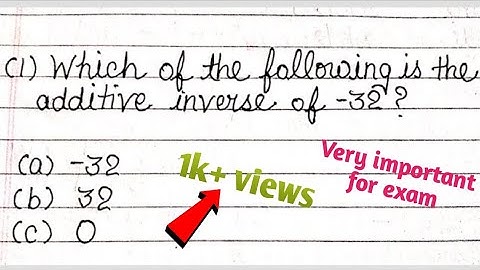 (1) Which of the following is the
additive inverse of -32?
(a) -32
(b) 32
(c) 0
1k+ views
Very important
for exam